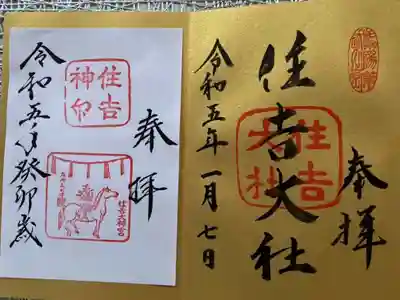 奉拝
住吉大社
住吉大社
令和五年一月七日
奉拝
住吉神印
住吉大神宮
令和五年癸卯歳